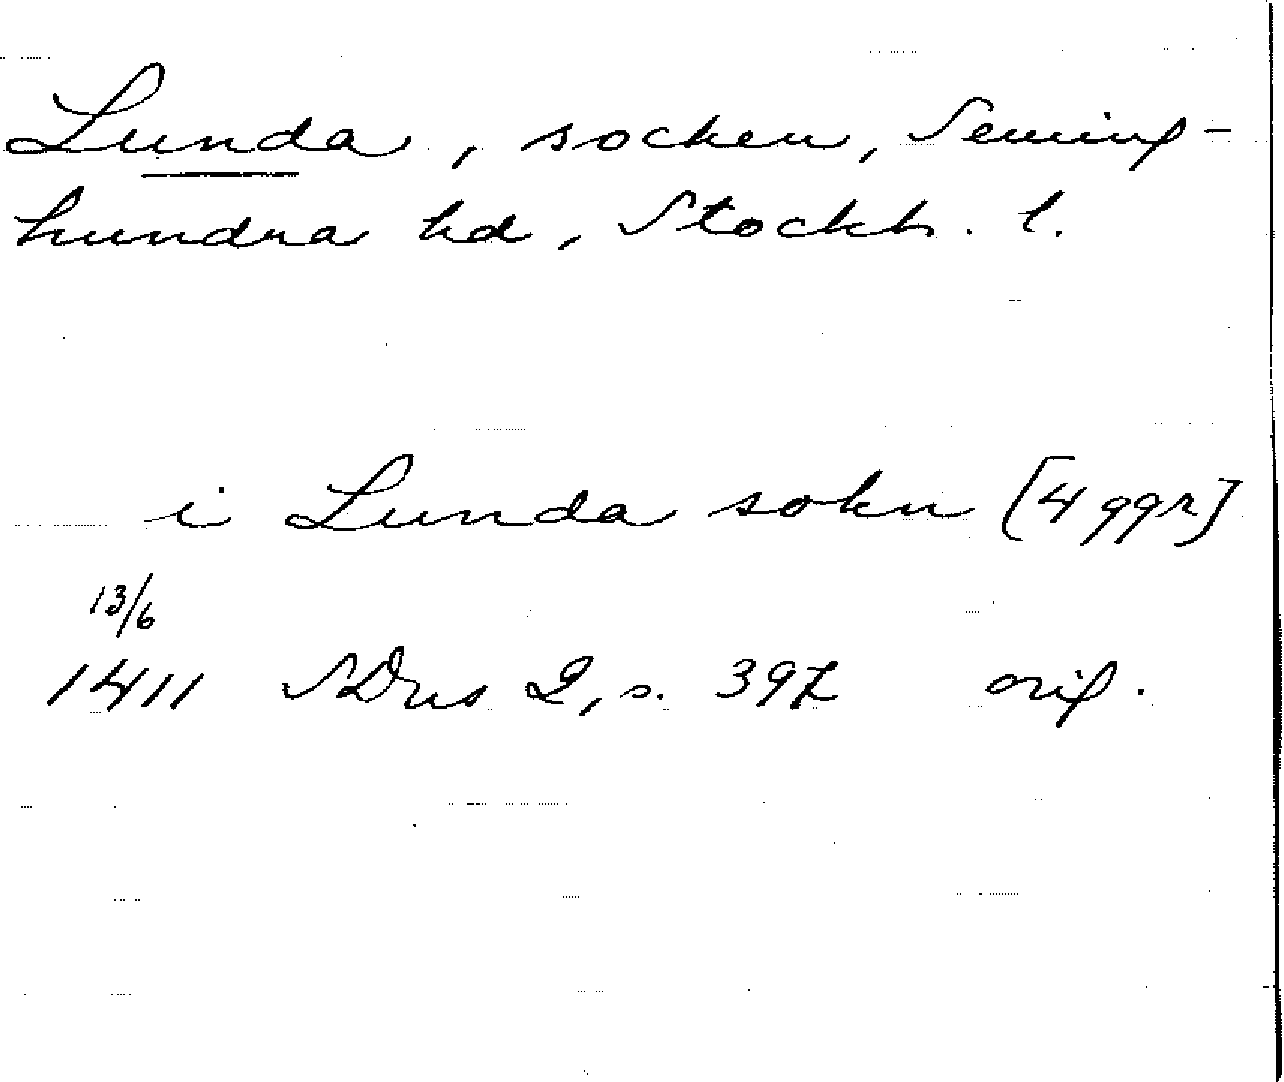 Lunda, socken, Seming-
hundra hd, Stockh. l.
i Lunda sokn [4 ggr]
13/6
1411 SDns 2, s. 397 orig.